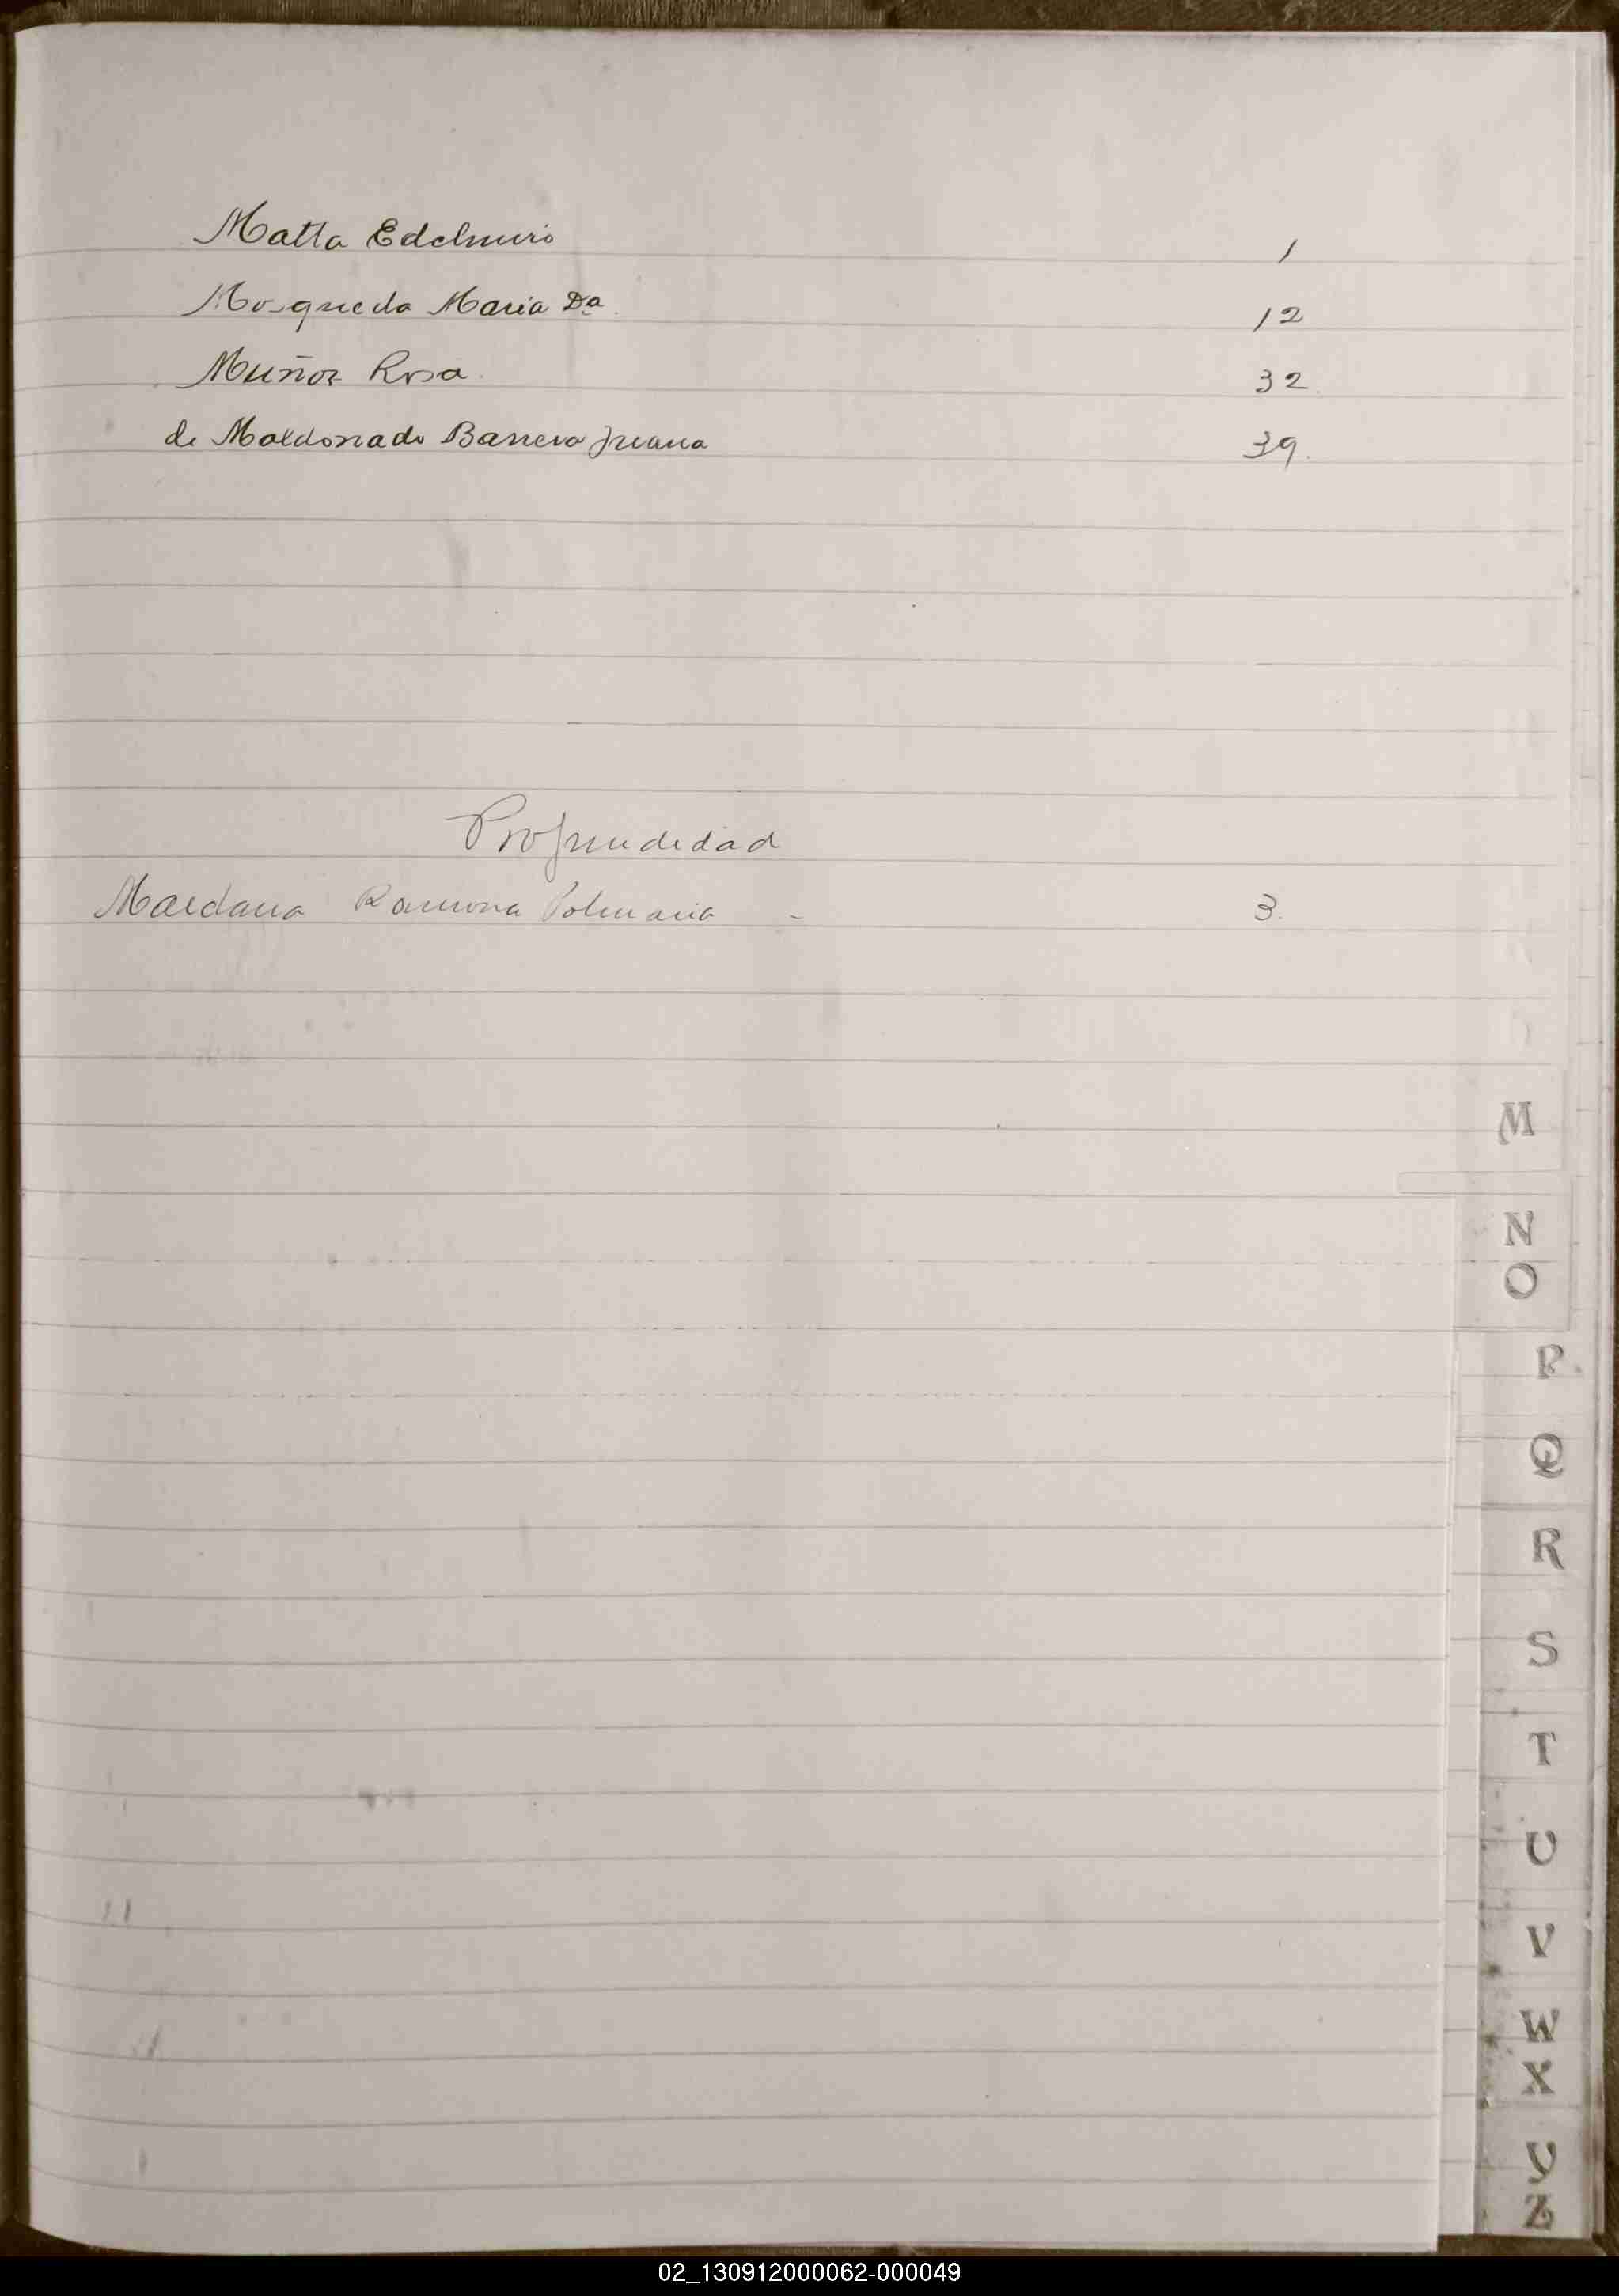 Matta Edelmiro 1
Mosqueda Maria Da 12
Muñoz Rosa 32
de Maldonado Barrera Juana 39.
Profundidad
Ramona 3.
M
N
O
P
Q
R
S
T
U
V
W
X
Y
Z
02_130912000062-000049